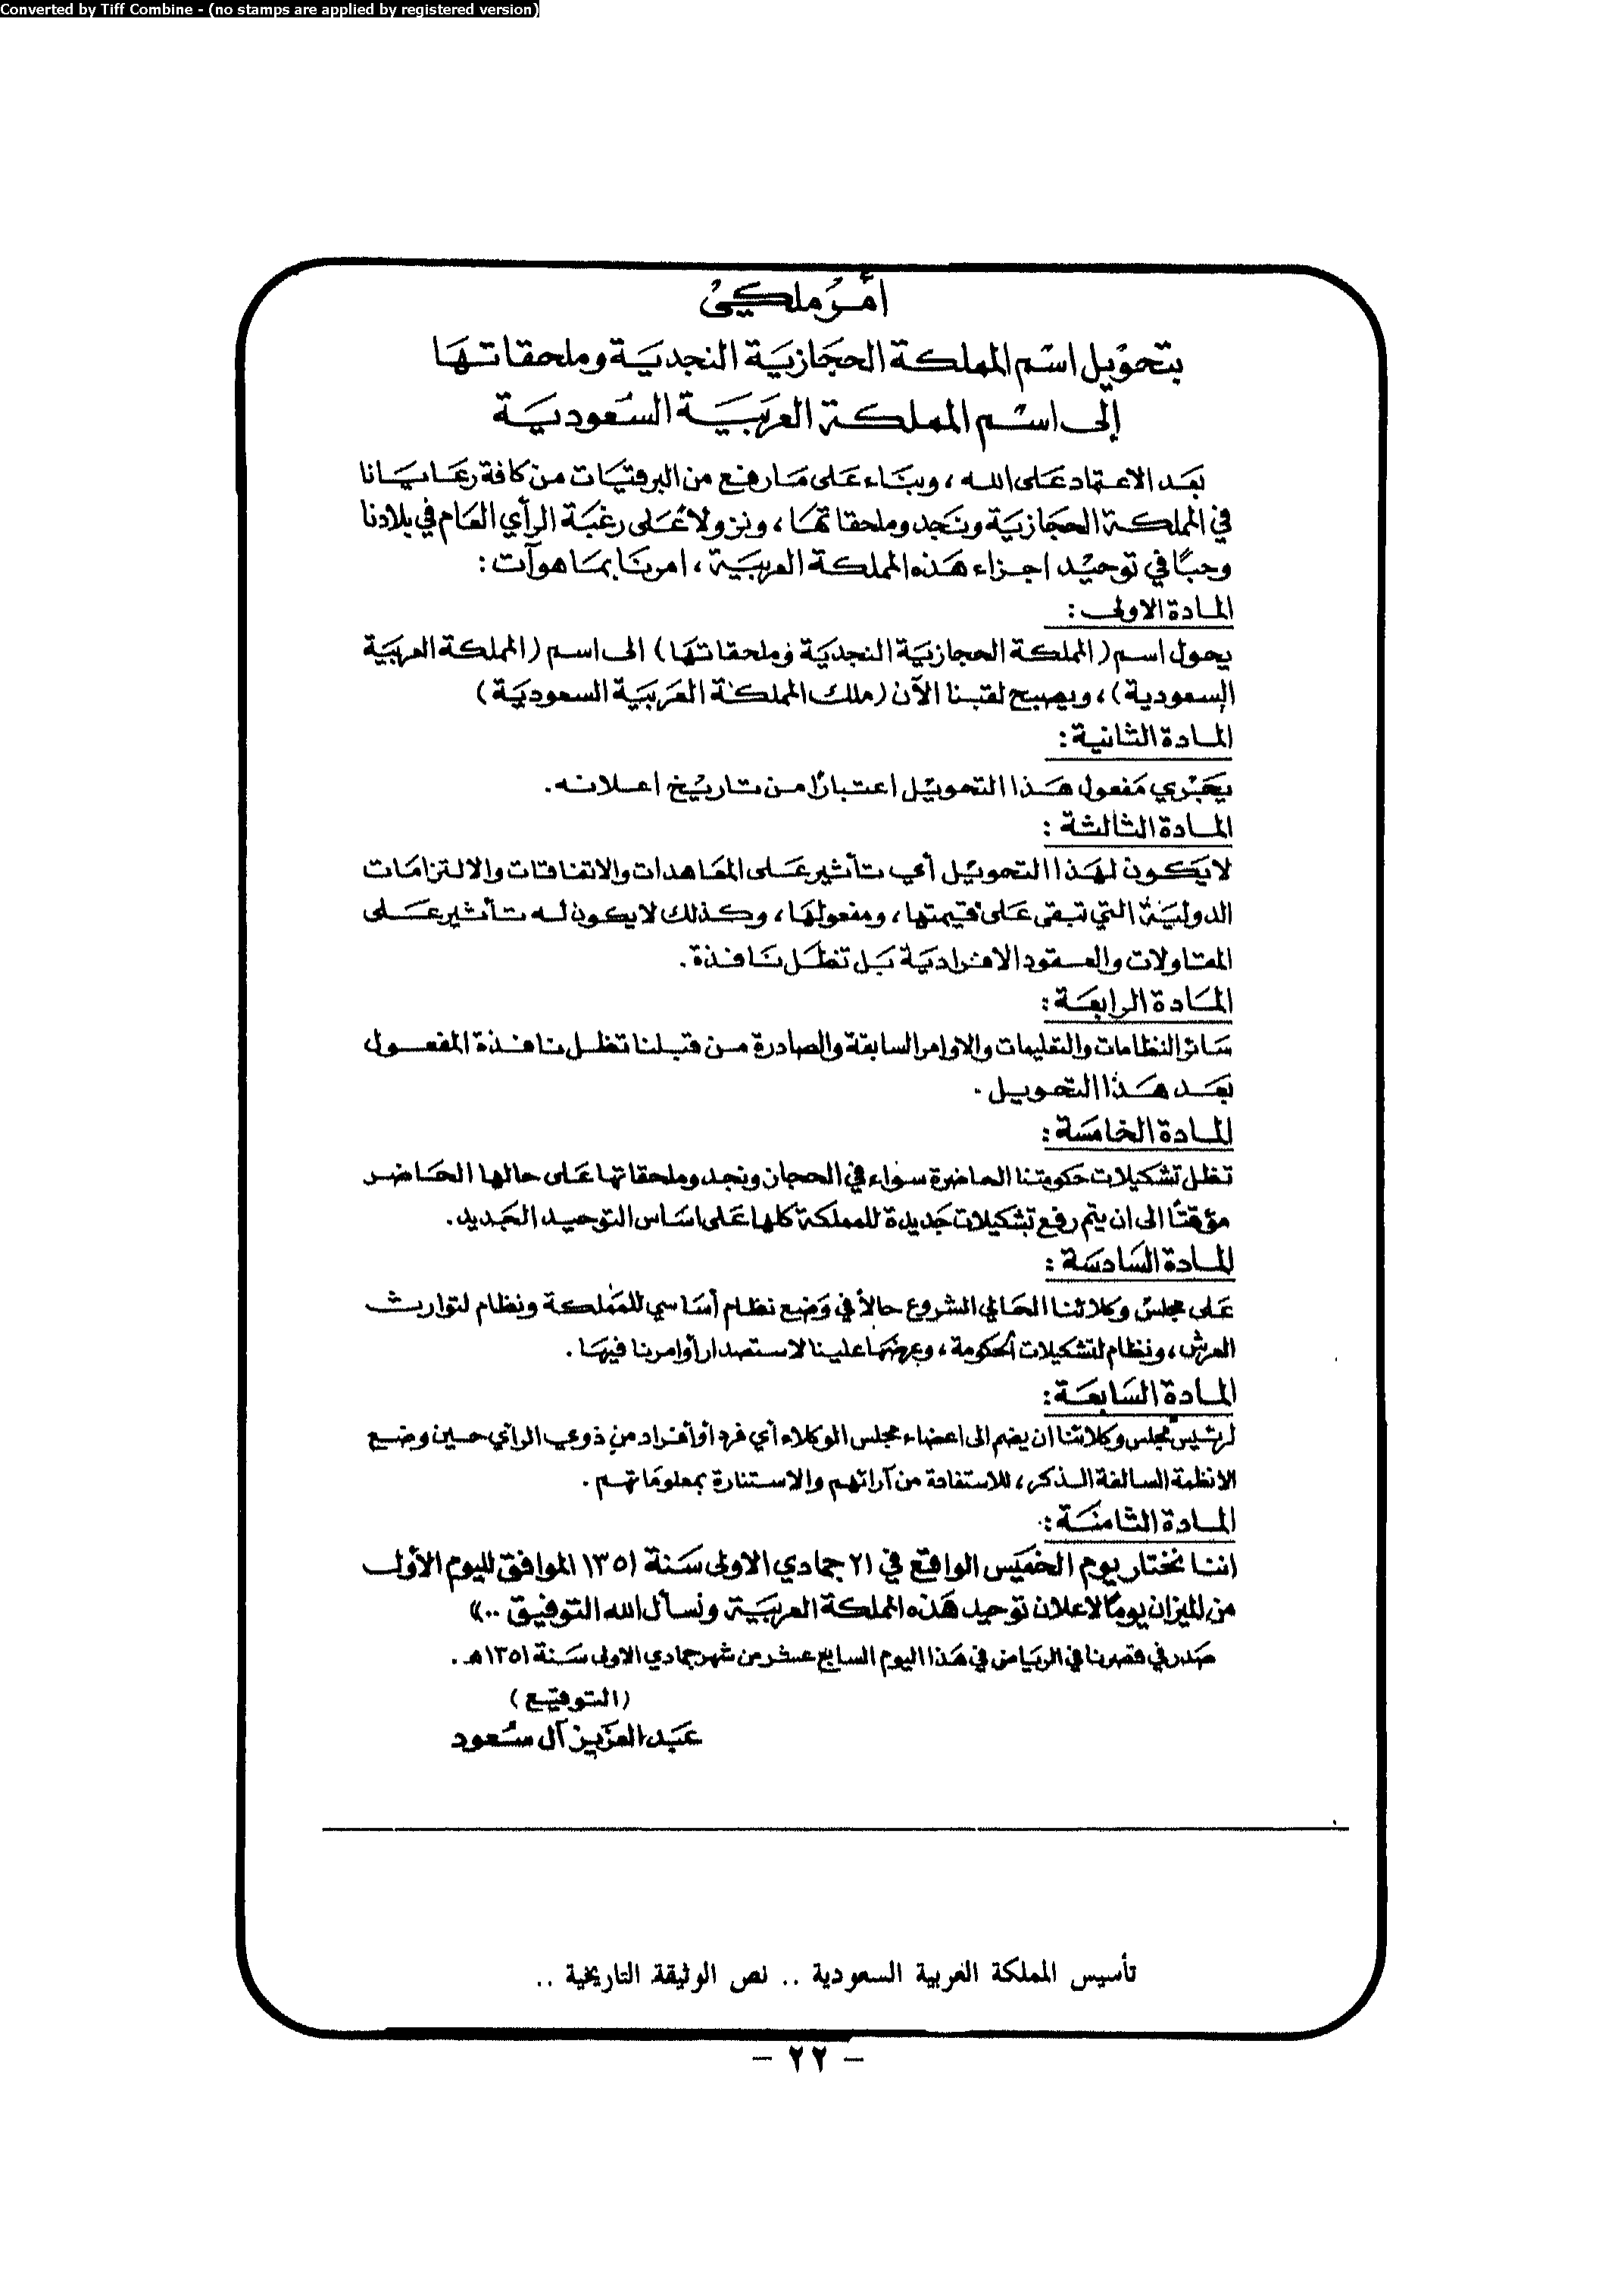 Converted by Tiff Combine - (no stamps are applied by registered version)
أمر ملكي
بتحويل اسم المملكة الحجازية النجدية وملحقاتها
إلى اسم المملكة العربية السعودية
بعد الاعتماد على الله ، وبناء على ما رفع من البرقيات من كافة رعايانا
في المملكة الحجازية ونجد وملحقاتها ، ونزولا على رغبة الرأي العام في بلادنا
وحبًا في توحيد اجزاء هذه المملكة العربية ، امرنا بما هو آت :
المادة الاولى :
يحول اسم ( المملكة الحجازية النجدية وملحقاتها ) الى اسم ( المملكة العربية
السعودية ) ، ويصبح لقبنا الآن ( ملك المملكة العربية السعودية )
المادة الثانية :
يجري مفعول هذا التحويل اعتبارًا من تاريخ اعلانه .
المادة الثالثة :
لا يكون لهذا التحويل أي تأثير على المعاهدات والاتفاقات والالتزامات
الدولية التي تبقى على قيمتها ، ومفعولها ، وكذلك لا يكون له تأثير على
المقاولات والعقود الافرادية بل تظل نافذة .
المادة الرابعة :
سائر النظامات والتعليمات والاوامر السابقة والصادرة من قبلنا تظل نافذة المفعول
بعد هذا التحويل .
المادة الخامسة :
تظل تشكيلات حكومتنا الحاضرة سواء في الحجاز ونجد وملحقاتها على حالها الحاضر
مؤقتًا الى ان يتم رفع تشكيلات جديدة للمملكة كلها على اساس التوحيد الجديد .
المادة السادسة :
على مجلس وكلائنا الحالي الشروع حالاً في وضع نظام أساسي للمملكة ونظام لتوارث
العرش ، ونظام لتشكيلات الحكومة ، وعرضها علينا لاستصدار أوامرنا فيها .
المادة السابعة :
لرئيس مجلس وكلائنا ان يضم الى اعضاء مجلس الوكلاء أي فرد أو أفراد من ذوي الرأي حين وضع
الانظمة السالفة الذكر ، للاستفادة من آرائهم والاستنارة بمعلوماتهم .
المادة الثامنة :
اننا نختار يوم الخميس الواقع في ٢١ جمادي الاولى سنة ١٣٥١ الموافق لليوم الأول
من الميزان يومًا لاعلان توحيد هذه المملكة العربية ونسأل الله التوفيق .. »
صدر في قصرنا في الرياض في هذا اليوم السابع عشر من شهر جمادي الاولى سنة ١٣٥١ هـ .
( التوقيع )
عبد العزيز آل سعود
تأسيس المملكة العربية السعودية .. نص الوثيقة التاريخية ..
– ٢٢ –